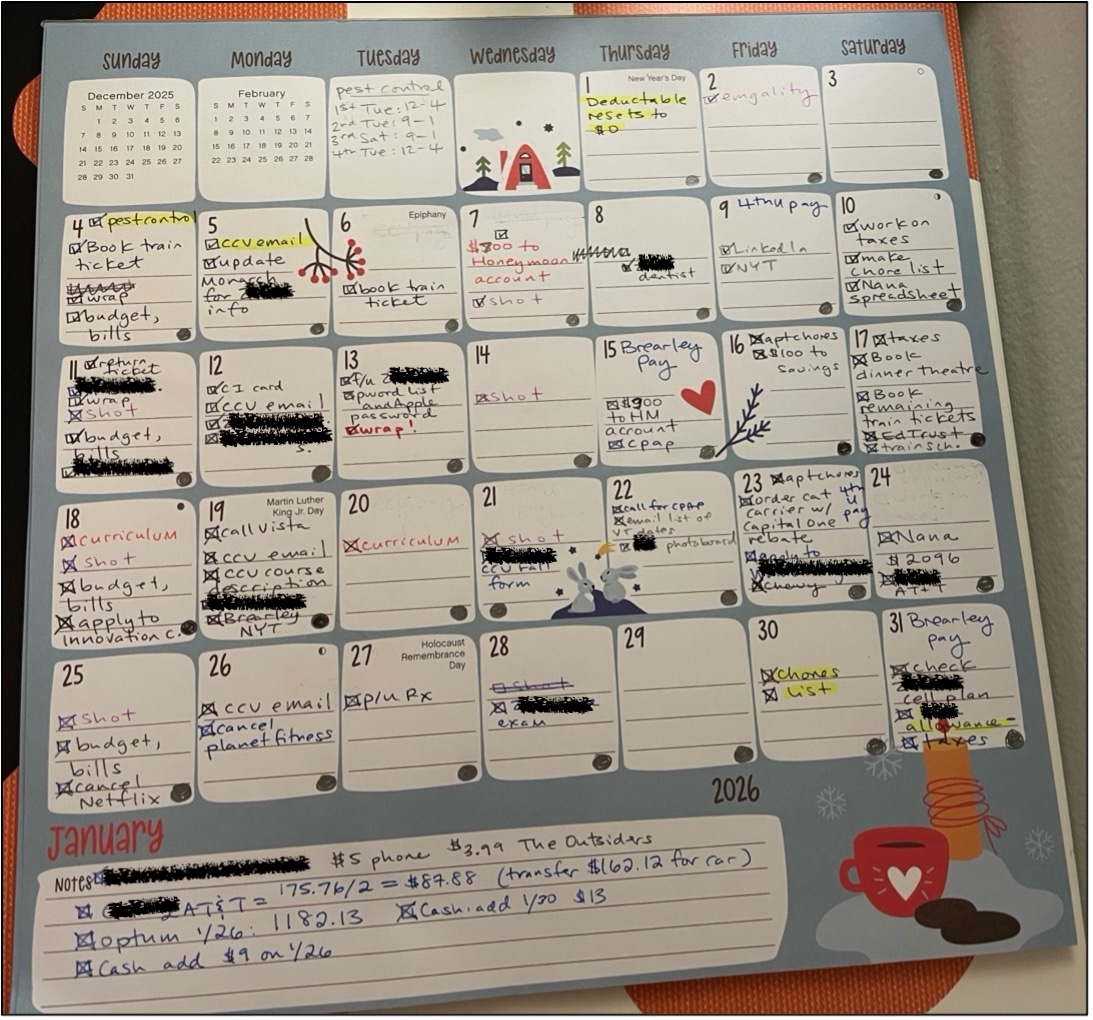 Sunday Monday Tuesday Wednesday Thursday Friday Saturday
December 2025
S M T W T F S
1 2 3 4 5 6
7 8 9 10 11 12 13
14 15 16 17 18 19 20
21 22 23 24 25 26 27
28 29 30 31
February
S M T W T F S
1 2 3 4 5 6 7
8 9 10 11 12 13 14
15 16 17 18 19 20 21
22 23 24 25 26 27 28
pest control
1st Tue: 12-4
2nd Tue: 9-1
3rd Sat: 9-1
4th Tue: 12-4
1 New Year's Day
Deductable
resets to
$0
2
emgality
3
4 pest control
Book train
ticket
wrap
budget,
bills
5
CCV email
update
Monarch
for
info
6 Epiphany
book train
ticket
7
$700 to
Honeymoon
account
shot
8
dentist
9 4th U pay
LinkedIn
NYT
10
work on
taxes
make
chore list
Nana
spreadsheet
11 return
ticket
wrap
shot
budget,
bills
12
CI card
CCV email
s.
13
P/u
pword list
and Apple
password
wrap!
14
shot
15 Brearley
Pay
$900
to HM
account
cpap
16 apt chores
$100 to
savings
17 taxes
Book
dinner theatre
Book
remaining
train tickets
EdTrust
train sch.
18
curriculum
shot
budget,
bills
apply to
innovation c.
19 Martin Luther
King Jr. Day
call Vista
CCV email
CCV course
description
Brearley
NYT
20
curriculum
21
shot
CCV Fall
form
22
call for CPAP
email list of
VT dates
photoboard
23 apt chores
order cat 4th
carrier w/ U
Capital One pay
rebate
apply to
chewy
24
Nana
$2096
AT&T
25
shot
budget,
bills
cancel
Netflix
26
CCV email
cancel
planet fitness
27 Holocaust
Remembrance
Day
P/u Rx
28
shot
exam
29
30
chores
list
31 Brearley
pay
check
cell plan
allowance-
taxes
2026
January
Notes $5 phone $3.99 The Outsiders
AT&T = 175.76/2 = $87.88 (transfer $162.12 for car)
optum 1/26: 1182.13 Cash: add 1/30 $13
Cash add $9 on 1/26